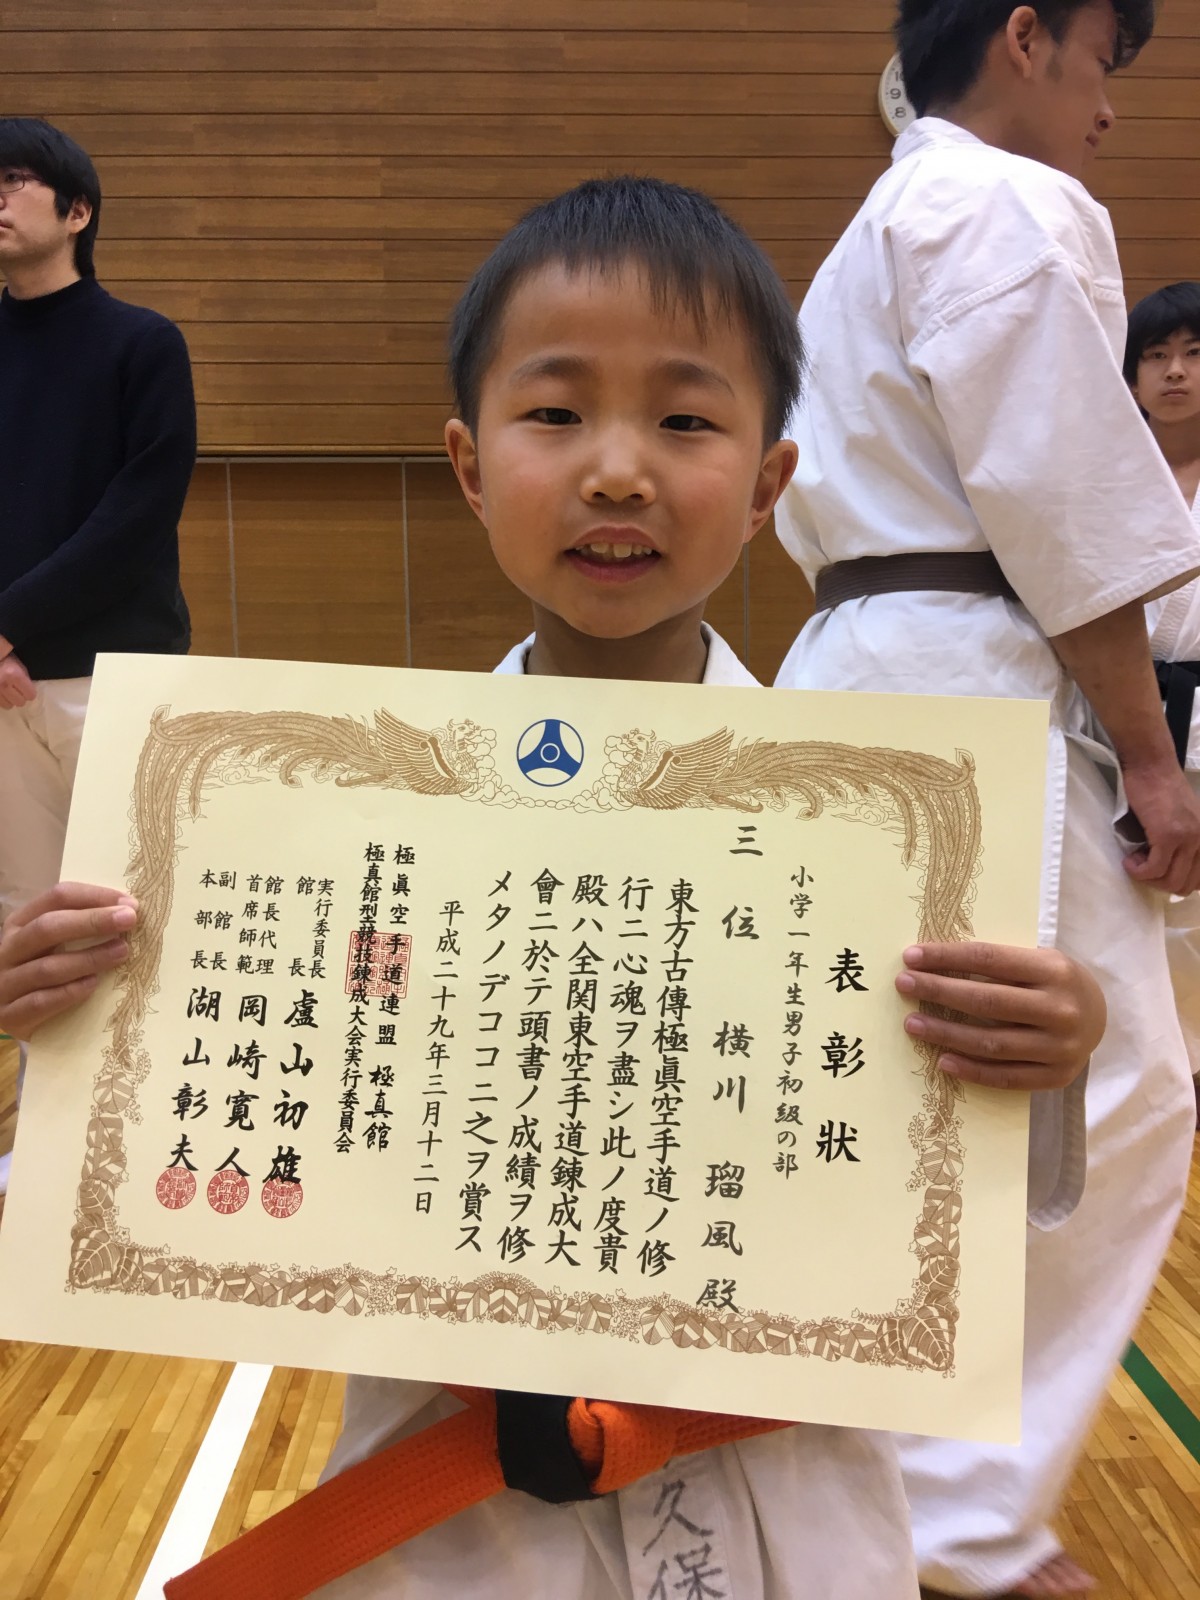 表彰状
小学一年生男子初級の部
三位 横川 瑠風 殿
東方古傳極眞空手道ノ修
行ニ心魂ヲ盡シ此ノ度貴
殿ハ全関東空手道錬成大
會ニ於テ頭書ノ成績ヲ修
メタノデココニ之ヲ賞ス
平成二十九年三月十二日
極眞空手道連盟 極真館
極真館型競技錬成大会実行委員会
実行委員長
館長 盧山初雄
館長代理
首席師範 岡崎寛人
副館長
本部長 湖山彰夫
久保
10
9
8